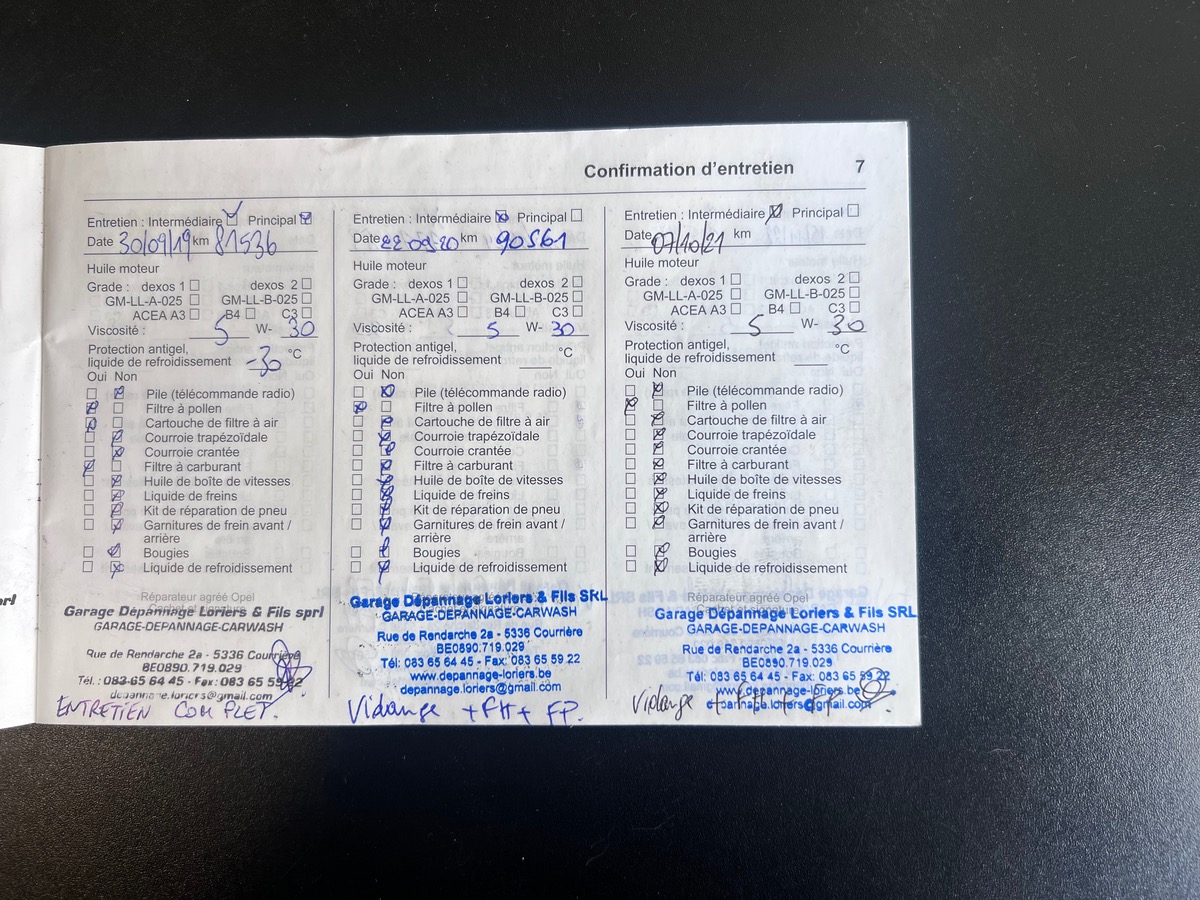 Confirmation d'entretien 7
Entretien : Intermédiaire ☑ Principal ☑
Date 30/09/19 km 81536
Huile moteur
Grade : dexos 1 ☐ dexos 2 ☐
GM-LL-A-025 ☐ GM-LL-B-025 ☐
ACEA A3 ☐ B4 ☐ C3 ☐
Viscosité : 5 W- 30
Protection antigel,
liquide de refroidissement -30 °C
Oui Non
☐ ☒ Pile (télécommande radio)
☒ ☐ Filtre à pollen
☒ ☐ Cartouche de filtre à air
☐ ☒ Courroie trapézoïdale
☐ ☒ Courroie crantée
☒ ☐ Filtre à carburant
☐ ☒ Huile de boîte de vitesses
☐ ☒ Liquide de freins
☐ ☒ Kit de réparation de pneu
☐ ☒ Garnitures de frein avant /
arrière
☐ ☒ Bougies
☐ ☒ Liquide de refroidissement
Réparateur agréé Opel
Garage Dépannage Loriers & Fils sprl
GARAGE-DEPANNAGE-CARWASH
Rue de Rendarche 2a - 5336 Courrière
BE0890.719.029
Tél. : 083 65 64 45 - Fax : 083 65 59 22
depannage.loriers@gmail.com
ENTRETIEN COMPLET.
Entretien : Intermédiaire ☒ Principal ☐
Date 22 09 20 km 90561
Huile moteur
Grade : dexos 1 ☐ dexos 2 ☐
GM-LL-A-025 ☐ GM-LL-B-025 ☐
ACEA A3 ☐ B4 ☐ C3 ☐
Viscosité : 5 W- 30
Protection antigel,
liquide de refroidissement °C
Oui Non
☐ ☒ Pile (télécommande radio)
☒ ☐ Filtre à pollen
☐ ☒ Cartouche de filtre à air
☐ ☒ Courroie trapézoïdale
☐ ☒ Courroie crantée
☐ ☒ Filtre à carburant
☐ ☒ Huile de boîte de vitesses
☐ ☒ Liquide de freins
☐ ☒ Kit de réparation de pneu
☐ ☒ Garnitures de frein avant /
arrière
☐ ☒ Bougies
☐ ☒ Liquide de refroidissement
Garage Dépannage Loriers & Fils SRL
GARAGE-DEPANNAGE-CARWASH
Rue de Rendarche 2a - 5336 Courrière
BE0890.719.029
Tél: 083 65 64 45 - Fax: 083 65 59 22
www.depannage-loriers.be
depannage.loriers@gmail.com
Vidange + FH + FP.
Entretien : Intermédiaire ☒ Principal ☐
Date 07/10/21 km
Huile moteur
Grade : dexos 1 ☐ dexos 2 ☐
GM-LL-A-025 ☐ GM-LL-B-025 ☐
ACEA A3 ☐ B4 ☐ C3 ☐
Viscosité : 5 W- 30
Protection antigel,
liquide de refroidissement °C
Oui Non
☐ ☒ Pile (télécommande radio)
☒ ☐ Filtre à pollen
☐ ☒ Cartouche de filtre à air
☐ ☒ Courroie trapézoïdale
☐ ☒ Courroie crantée
☐ ☒ Filtre à carburant
☐ ☒ Huile de boîte de vitesses
☐ ☒ Liquide de freins
☐ ☒ Kit de réparation de pneu
☐ ☒ Garnitures de frein avant /
arrière
☐ ☒ Bougies
☐ ☒ Liquide de refroidissement
Réparateur agréé Opel
Garage Dépannage Loriers & Fils SRL
GARAGE-DEPANNAGE-CARWASH
Rue de Rendarche 2a - 5336 Courrière
BE0890.719.029
Tél: 083 65 64 45 - Fax: 083 65 59 22
www.depannage-loriers.be
depannage.loriers@gmail.com
Vidange + FH +